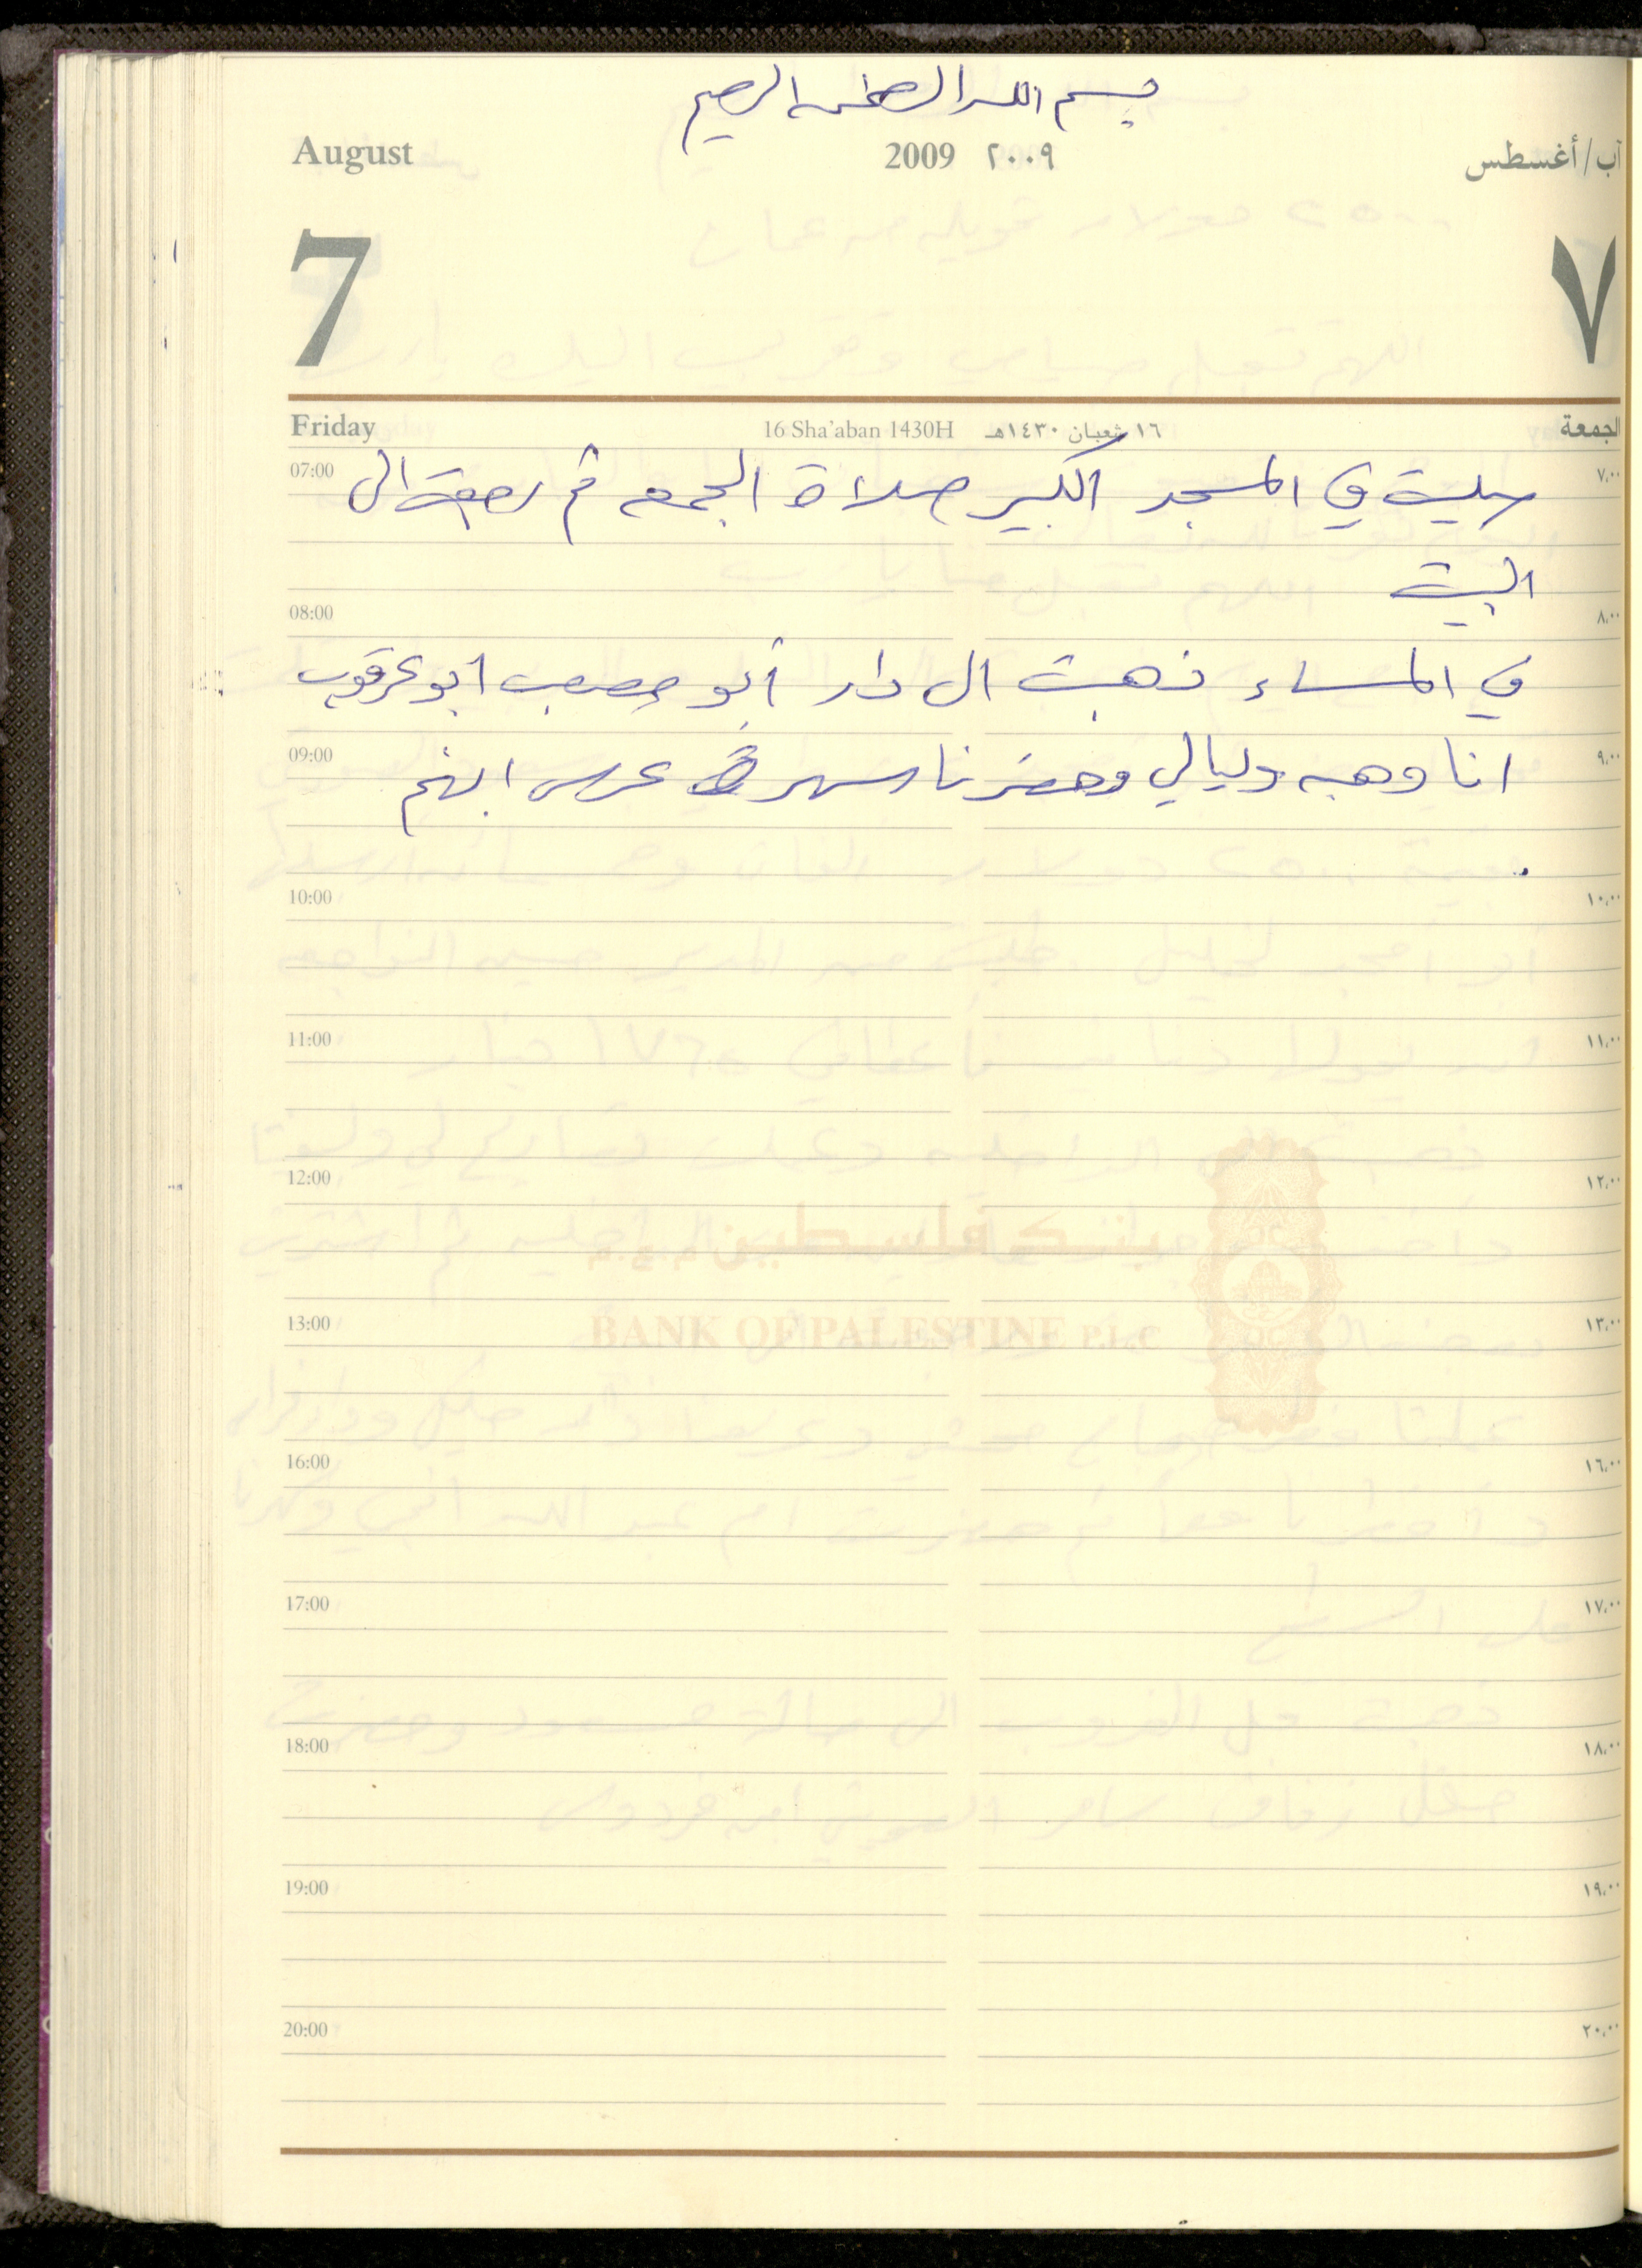 بسم الله الرحمن الرحيم
August 2009 ٢٠٠٩ آب/أغسطس
7 ٧
Friday 16 Sha'aban 1430H ١٦ شعبان ١٤٣٠هـ الجمعة
07:00 صليت في المسجد الكبير صلاة الجمعه ثم رجعت الى ٧،٠٠
البيت
08:00 ٨،٠٠
في المساء ذهبت الى دار أبو مصعب ابو عرقوب
09:00 انا وهبه وليالي وحضرنا سهرة عرس ابنهم ٩،٠٠
.
10:00 ١٠،٠٠
11:00 ١١،٠٠
12:00 ١٢،٠٠
بنك فلسطين م.ع.م
13:00 BANK OF PALESTINE P.L.C ١٣،٠٠
16:00 ١٦،٠٠
17:00 ١٧،٠٠
18:00 ١٨،٠٠
19:00 ١٩،٠٠
20:00 ٢٠،٠٠